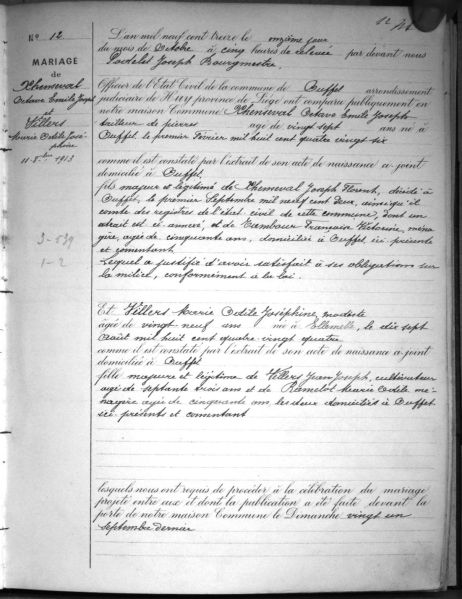 12
N° 12
MARIAGE
de
Xhenseval
Octave Emile Joseph
et
Villers
Marie Odile José-
phine
11-8bre 1913
3-539
1-2
L'an mil neuf cent treize le onzième jour
du mois de Octobre à cinq heures de relevée par devant nous
Joseph Bourgmestre
Officier de l'Etat Civil de la commune de Ouffet arrondissement
judiciaire de Huy province de Liége ont comparu publiquement en
notre maison Commune Xhenseval Octave Emile Joseph
tailleur de pierres âgé de vingt sept ans né à
Ouffet le premier Février mil huit cent quatre vingt six
comme il est constaté par l'extrait de son acte de naissance ci-joint
domicilié à Ouffet
fils majeur et légitime de Xhenseval Joseph Florent, décédé à
Ouffet, le premier Septembre mil neuf cent deux, ainsi qu'il
conste des registres de l'état civil de cette commune, dont un
extrait est ci annexé, et de Tambour Françoise Victoire, ména
gère, agée de cinquante ans, domiciliée à Ouffet ici présente
et consentant
Lequel a justifié d'avoir satisfait à ses obligations sur
la milice, conformément à la loi.
Et Villers Marie Odile Joséphine, modiste
âgée de vingt neuf ans née à Ellemelle, le dix sept
Août mil huit cent quatre vingt quatre
comme il est constaté par l'extrait de son acte de naissance ci-joint
domiciliée à Ouffet
fille majeure et légitime de Villers Jean Joseph, cultivateur
agé de septante trois ans et de Marie Odile mé-
nagère agée de cinquante ans, les deux domiciliés à Ouffet
ici présents et consentant
lesquels nous ont requis de procéder à la célébration du mariage
projeté entre eux et dont la publication a été faite devant la
porte de notre maison Commune le Dimanche vingt un
septembre dernier